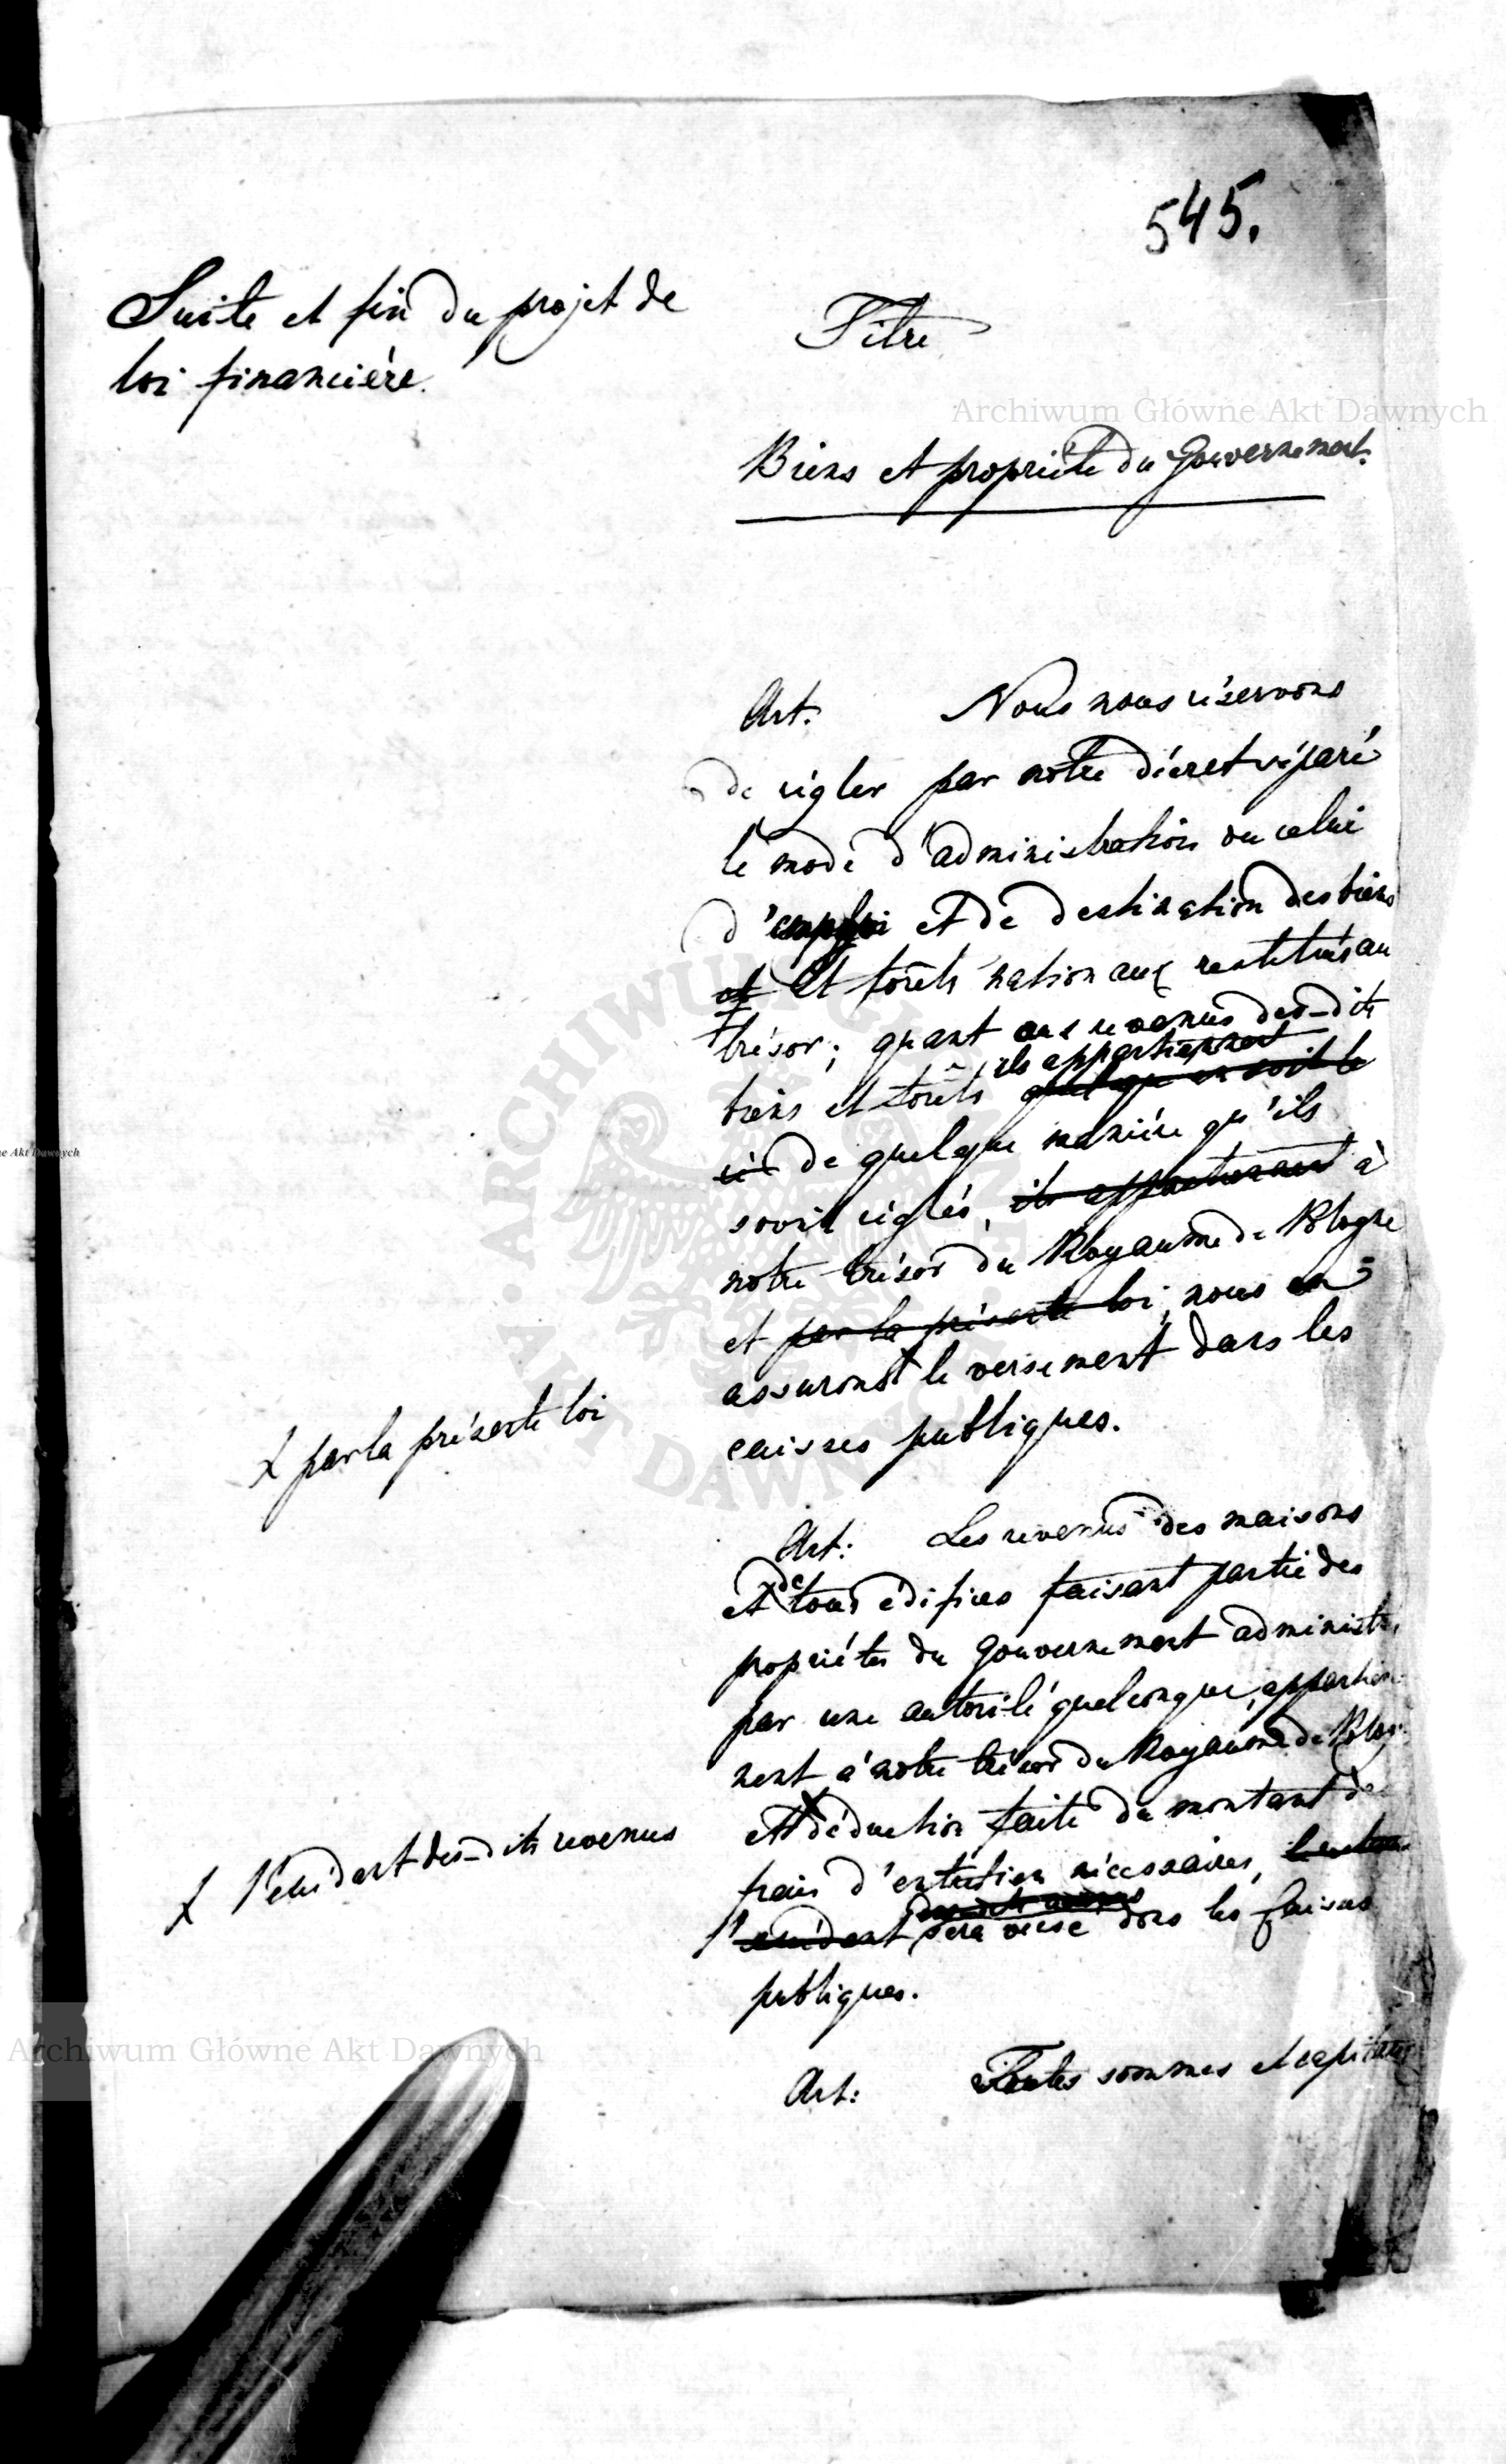 545.
Suite et fin du projet de
loi financière.
Titre
Biens et propriété du Gouvernement.
Art. Nous nous réservons
de régler par notre décret séparé
le mode d'administration ou celui
d'emploi et de destination des biens
et et forêts nationaux restitués au
trésor; quant aux revenus des-dits
ils appartiennent
biens et forêts quelque en soit le
de quelque manière qu'ils
soient réglés, ils appartiennent à
notre trésor du Royaume de Pologne
et par la présente loi, nous en
assurons le versement dans les
caisses publiques.
X par la présente loi
Art: Les revenus des maisons
et de tous édifices faisant partie des
propriétés du Gouvernement administr
par une autorité quelconque, appartien
nent à notre trésor du Royaume de Polog
et X déduction faite du montant de
frais d'entretien nécessaires,
des-dits revenus
l'excédent sera versé dans les Caisses
publiques.
X l'excédent des-dits revenus
Art: Toutes sommes et capitaux
Archiwum Główne Akt Dawnych
Archiwum Główne Akt Dawnych
ne Akt Dawnych